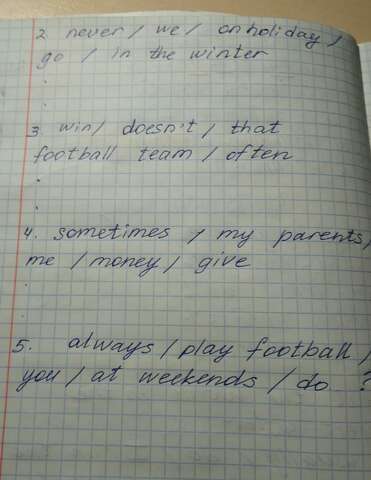 2 never / we / on holiday /
go / in the winter
3. win / doesn't / that
football team / often
4. sometimes / my parents,
me / money / give
5. always / play football /
you / at weekends / do ?